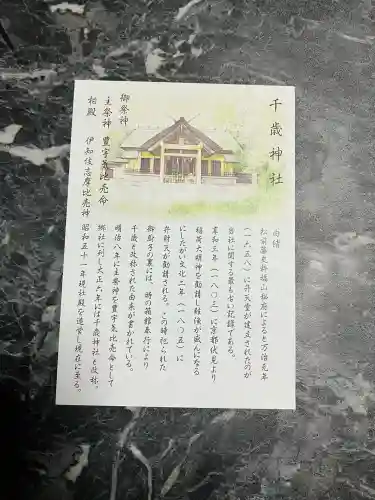 千歳神社
由緒
松前藩史料福山秘府によると万治元年
(一六五八)に弁天堂が建立されたのが
当社に関する最も古い記録である。
享和三年(一八〇三)に京都伏見より
稲荷大明神を勧請し鮭漁が盛んになる
にしたがい文化二年(一八〇五)に
弁財天が勧請される。この時祀られた
御厨子の裏には、時の箱館奉行により
千歳と改称された由来が書かれている。
明治八年に主祭神を豊宇気比売命として
郷社に列し大正六年には千歳神社と改称。
昭和五十一年現社殿を造営し現在に至る。
御祭神
主祭神 豊宇気比売命
相殿 伊知伎志摩比売神